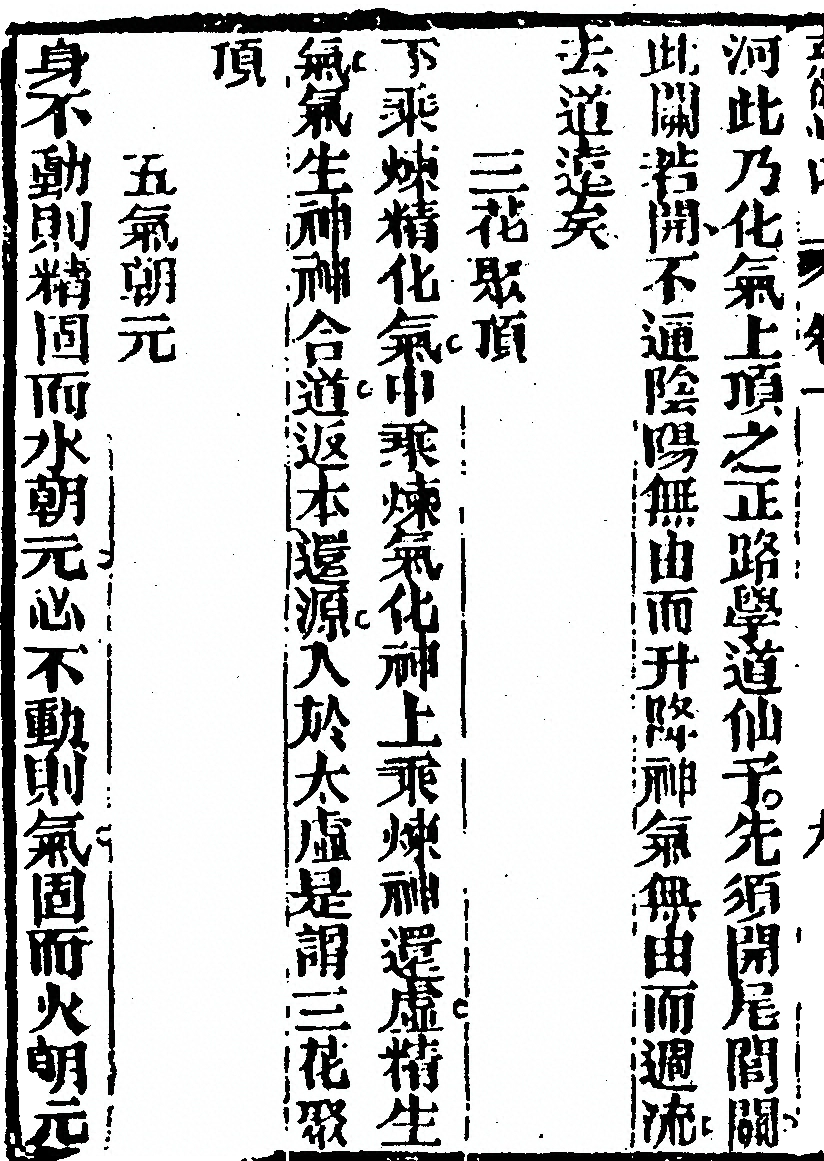 河此乃化氣上頂之正路學道仙子。先須開尾閭關
此關若開不通陰陽無由而升降神氣無由而週流
去道遠矣
三花聚頂
下乘煉精化氣中乘煉氣化神上乘煉神還虛精生
氣氣生神神合道返本還源入於太虛是謂三花聚
頂
五氣朝元
身不動則精固而水朝元心不動則氣固而火朝元